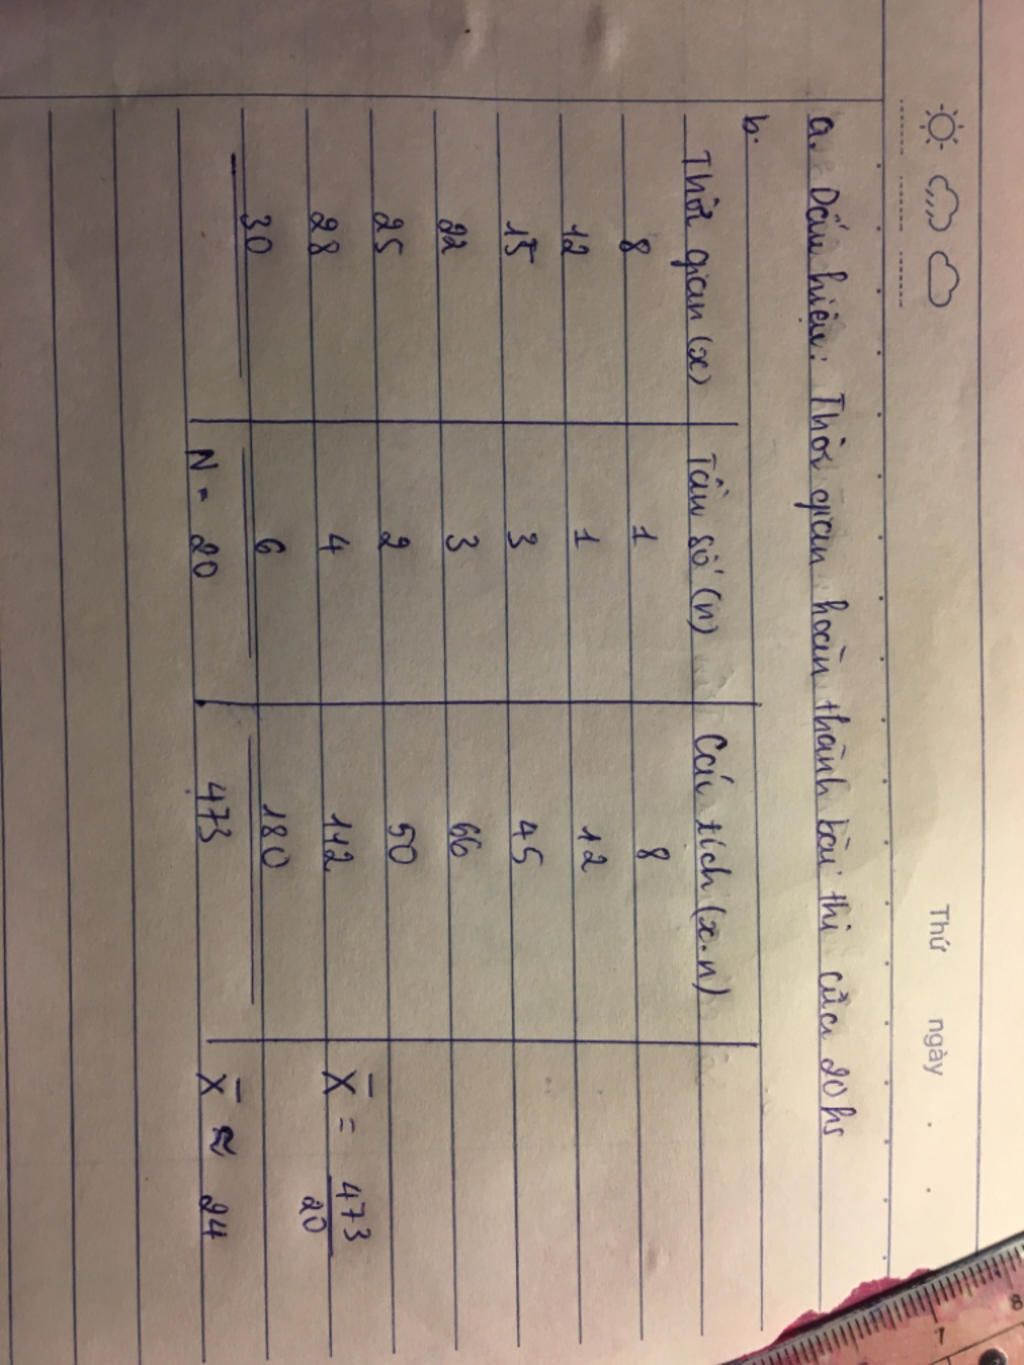 Thứ ngày . .
a. Dấu hiệu: Thời gian hoàn thành bài thi của 20 hs
b.
Thời gian (x) Tần số (n) Các tích (x.n)
8 1 8
12 1 12
15 3 45
22 3 66
25 2 50
28 4 112 X̄ = 473/20
30 6 180
N = 20 473 X̄ ≈ 24
7 8